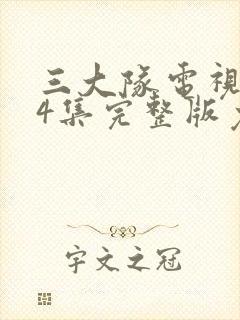 三大隊電視
4集完整版
宇文之冠